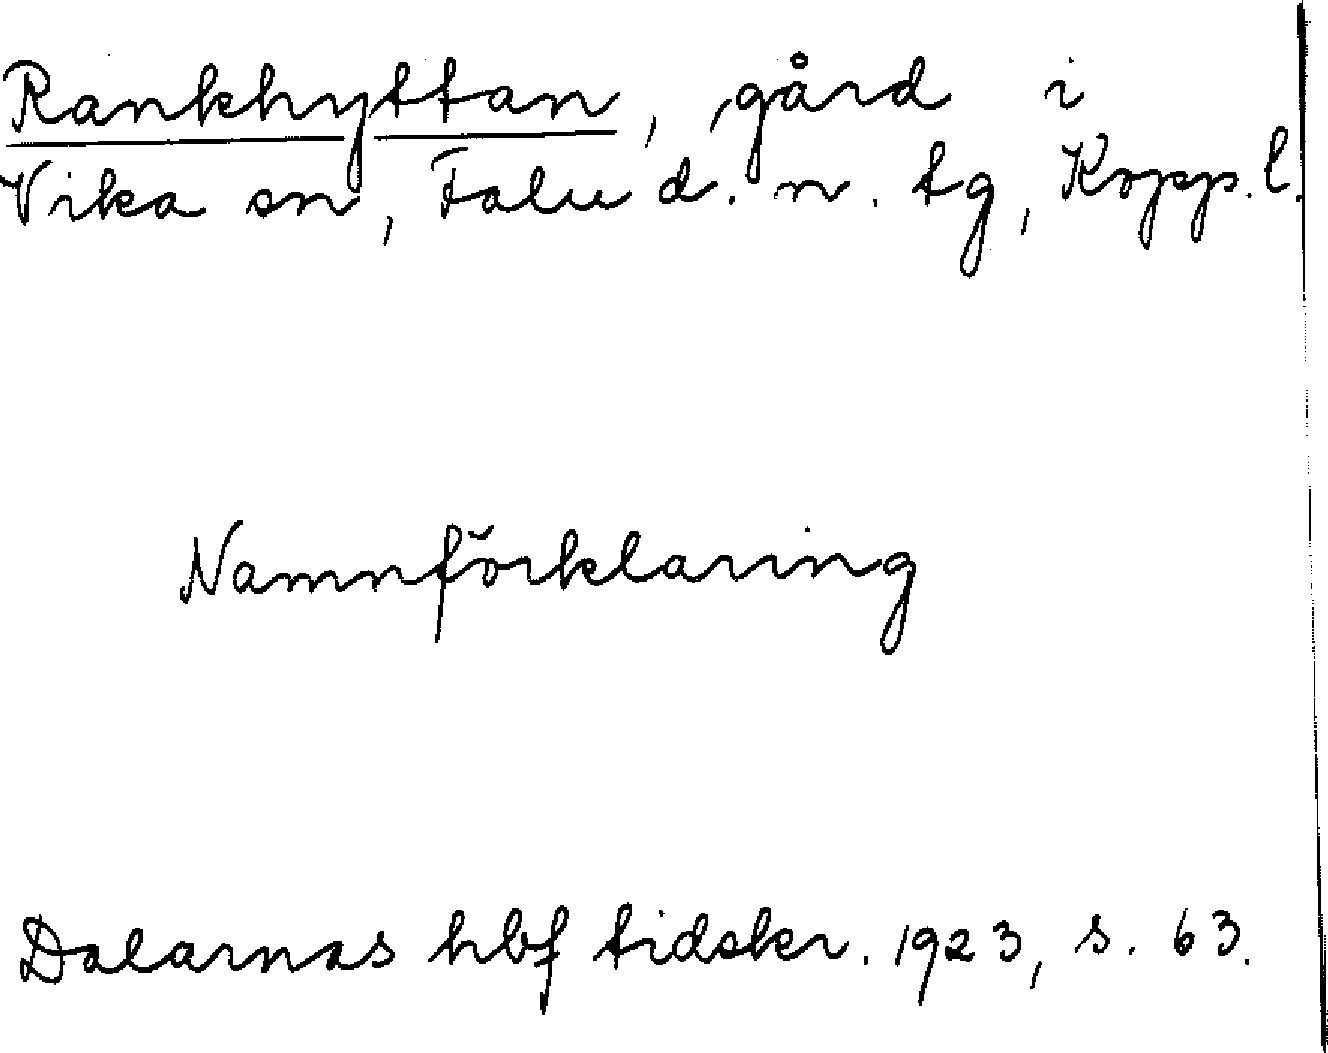 Rankhyttan, gård i
Vika sn, Falu d. n. tg, Kopp. l.
Namnförklaring
Dalarnas hbf tidskr. 1923, s. 63.